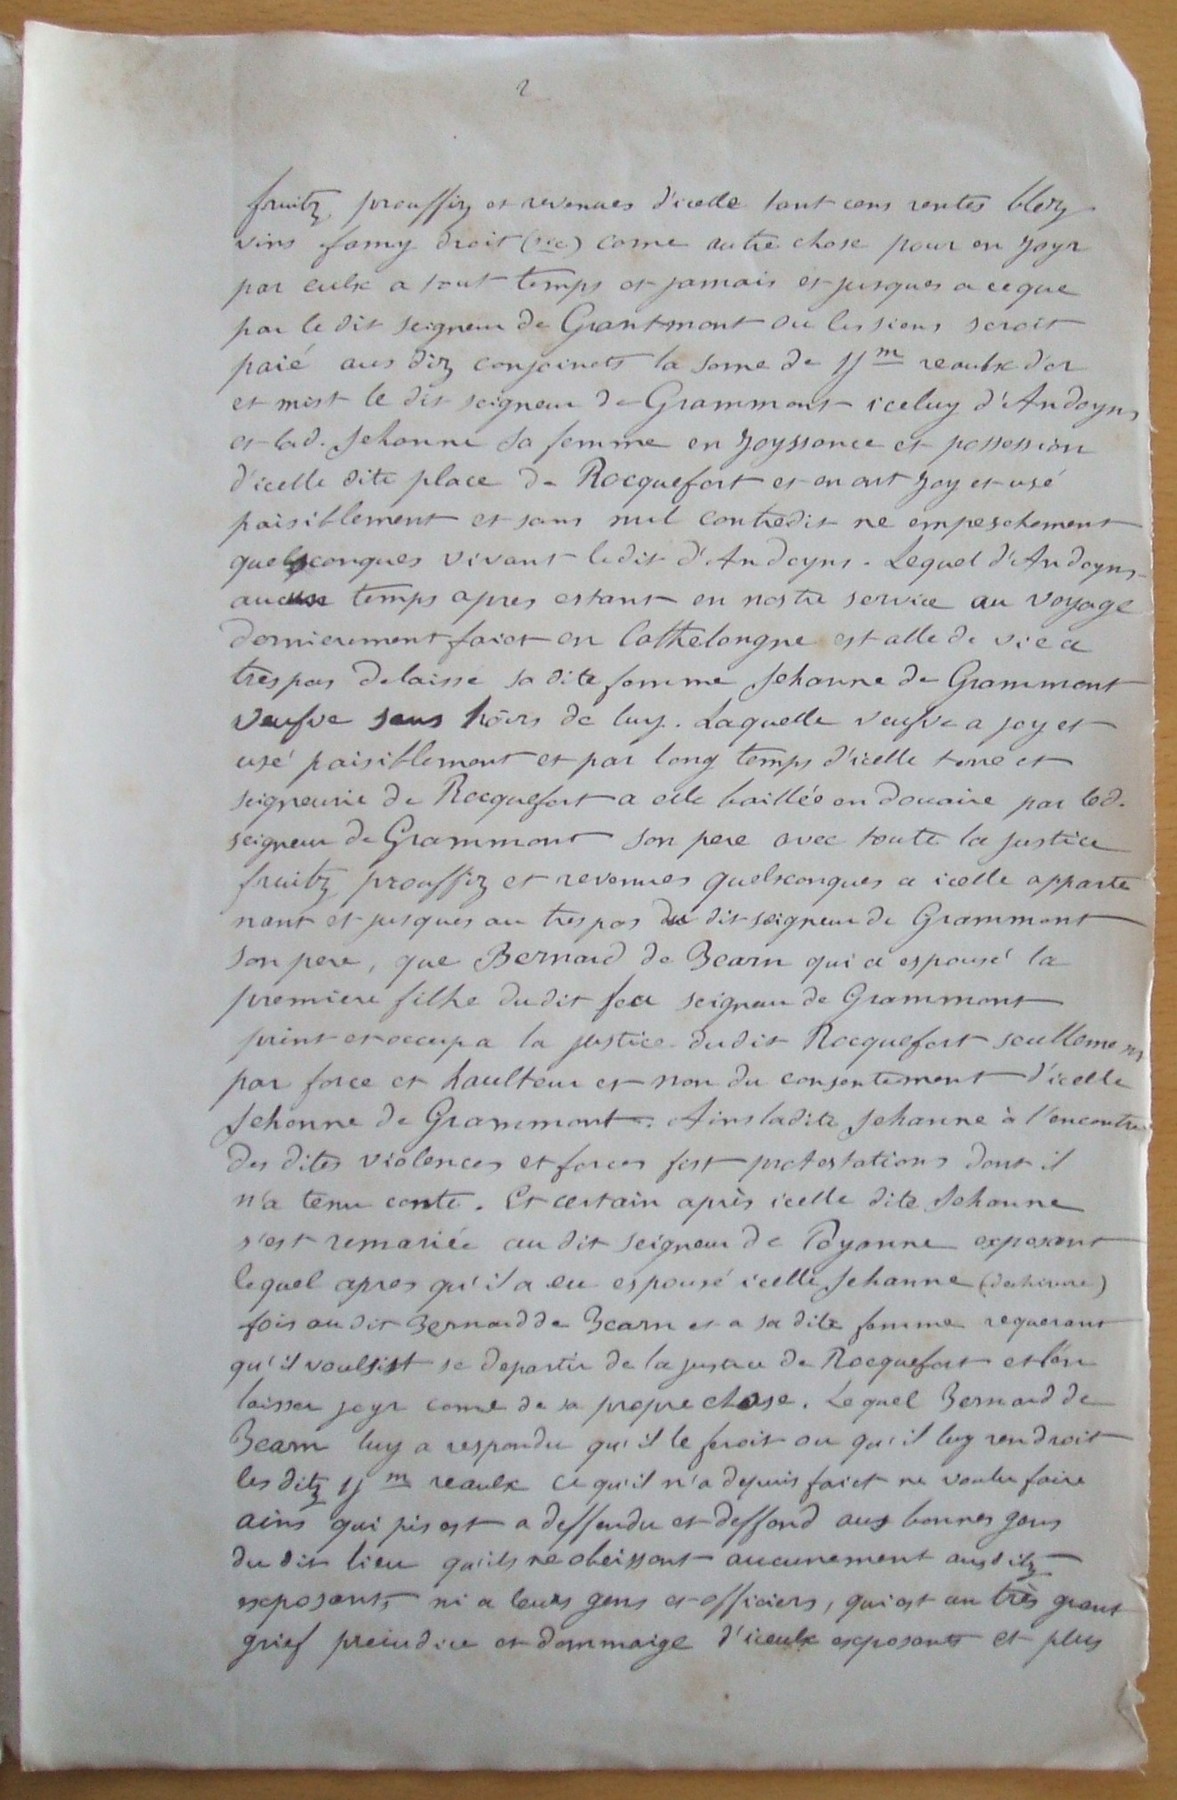 2
fruitz, prouffiz et revenues d'icelle tant cens rentes blez
vins forny droit (sic) come autre chose pour en joyr
par eulx a tout temps et jamais et jusques a ce que
par le dit seigneur de Grantmont ou les siens seroit
paié aus diz conjoincts la some de IJm reaulx d'or
et mist le dit seigneur de Grammont iceluy d'Andoyns
et lad. Jehanne sa femme en joyssance et possession
d'icelle dite place de Rocquefort et en ont joy et usé
paisiblement et sans nul contredit ne empeschement
quelxconques vivant ledit d'Andoyns. Lequel d'Andoyns
aucun temps apres estant en nostre service au voyage
dernierement faict en Cathelongne est alle de vie a
trespas delaissé sa dite femme Jehanne de Grammont
veufve sans hoirs de luy. Laquelle veufve a joy et
usé paisiblement et par long temps d'icelle terre et
seigneurie de Rocquefort a elle baillée en douaire par led.
seigneur de Grammont son pere avec toute la justice
fruitz prouffiz et revenues quelxconques a icelle apparte
nant et jusques au trespas du dit seigneur de Grammont
son pere, que Bernard de Bearn qui a espousé la
premiere filhe du dit feu seigneur de Grammont
print et occupa la justice dudit Rocquefort seullement
par force et haulteur et non du consentement d'icelle
Jehanne de Grammont. Ains ladite Jehanne à l'encontre
des dites violences et forces fist protestations dont il
n'a tenu conte. Et certain après icelle dite Jehanne
s'est remariée au dit seigneur de Poyanne exposant
lequel apres qu'il a eu espousé icelle Jehanne
fois au dit Bernard de Bearn et a sa dite femme requerant
qu'il voulsist se departir de la justice de Rocquefort et l'en
laisser joyr come de sa propre chose. Lequel Bernard de
Bearn luy a respondu qu'il le feroit ou qu'il luy rendroit
les ditz IJm reaulx ce qu'il n'a depuis faict ne voulu faire
ains qui pis est a deffendu et deffend aus bonnes gens
du dit lieu qu'ils ne obeissent aucunement ausditz
exposants ni a leurs gens et officiers, qui est au très grant
grief preiudice et dommaige d'iceulx exposants et plus